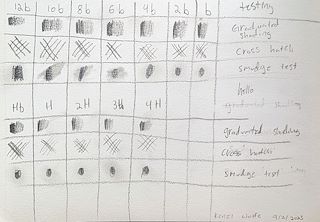 12b 10b 8b 6b 4b 2b b testing
Graduated
shading
Cross hatch
Smudge test
hello
Hb H 2H 3H 4H graduated shading
graduated shading
Cross hatch
Smudge test
9/2/2023